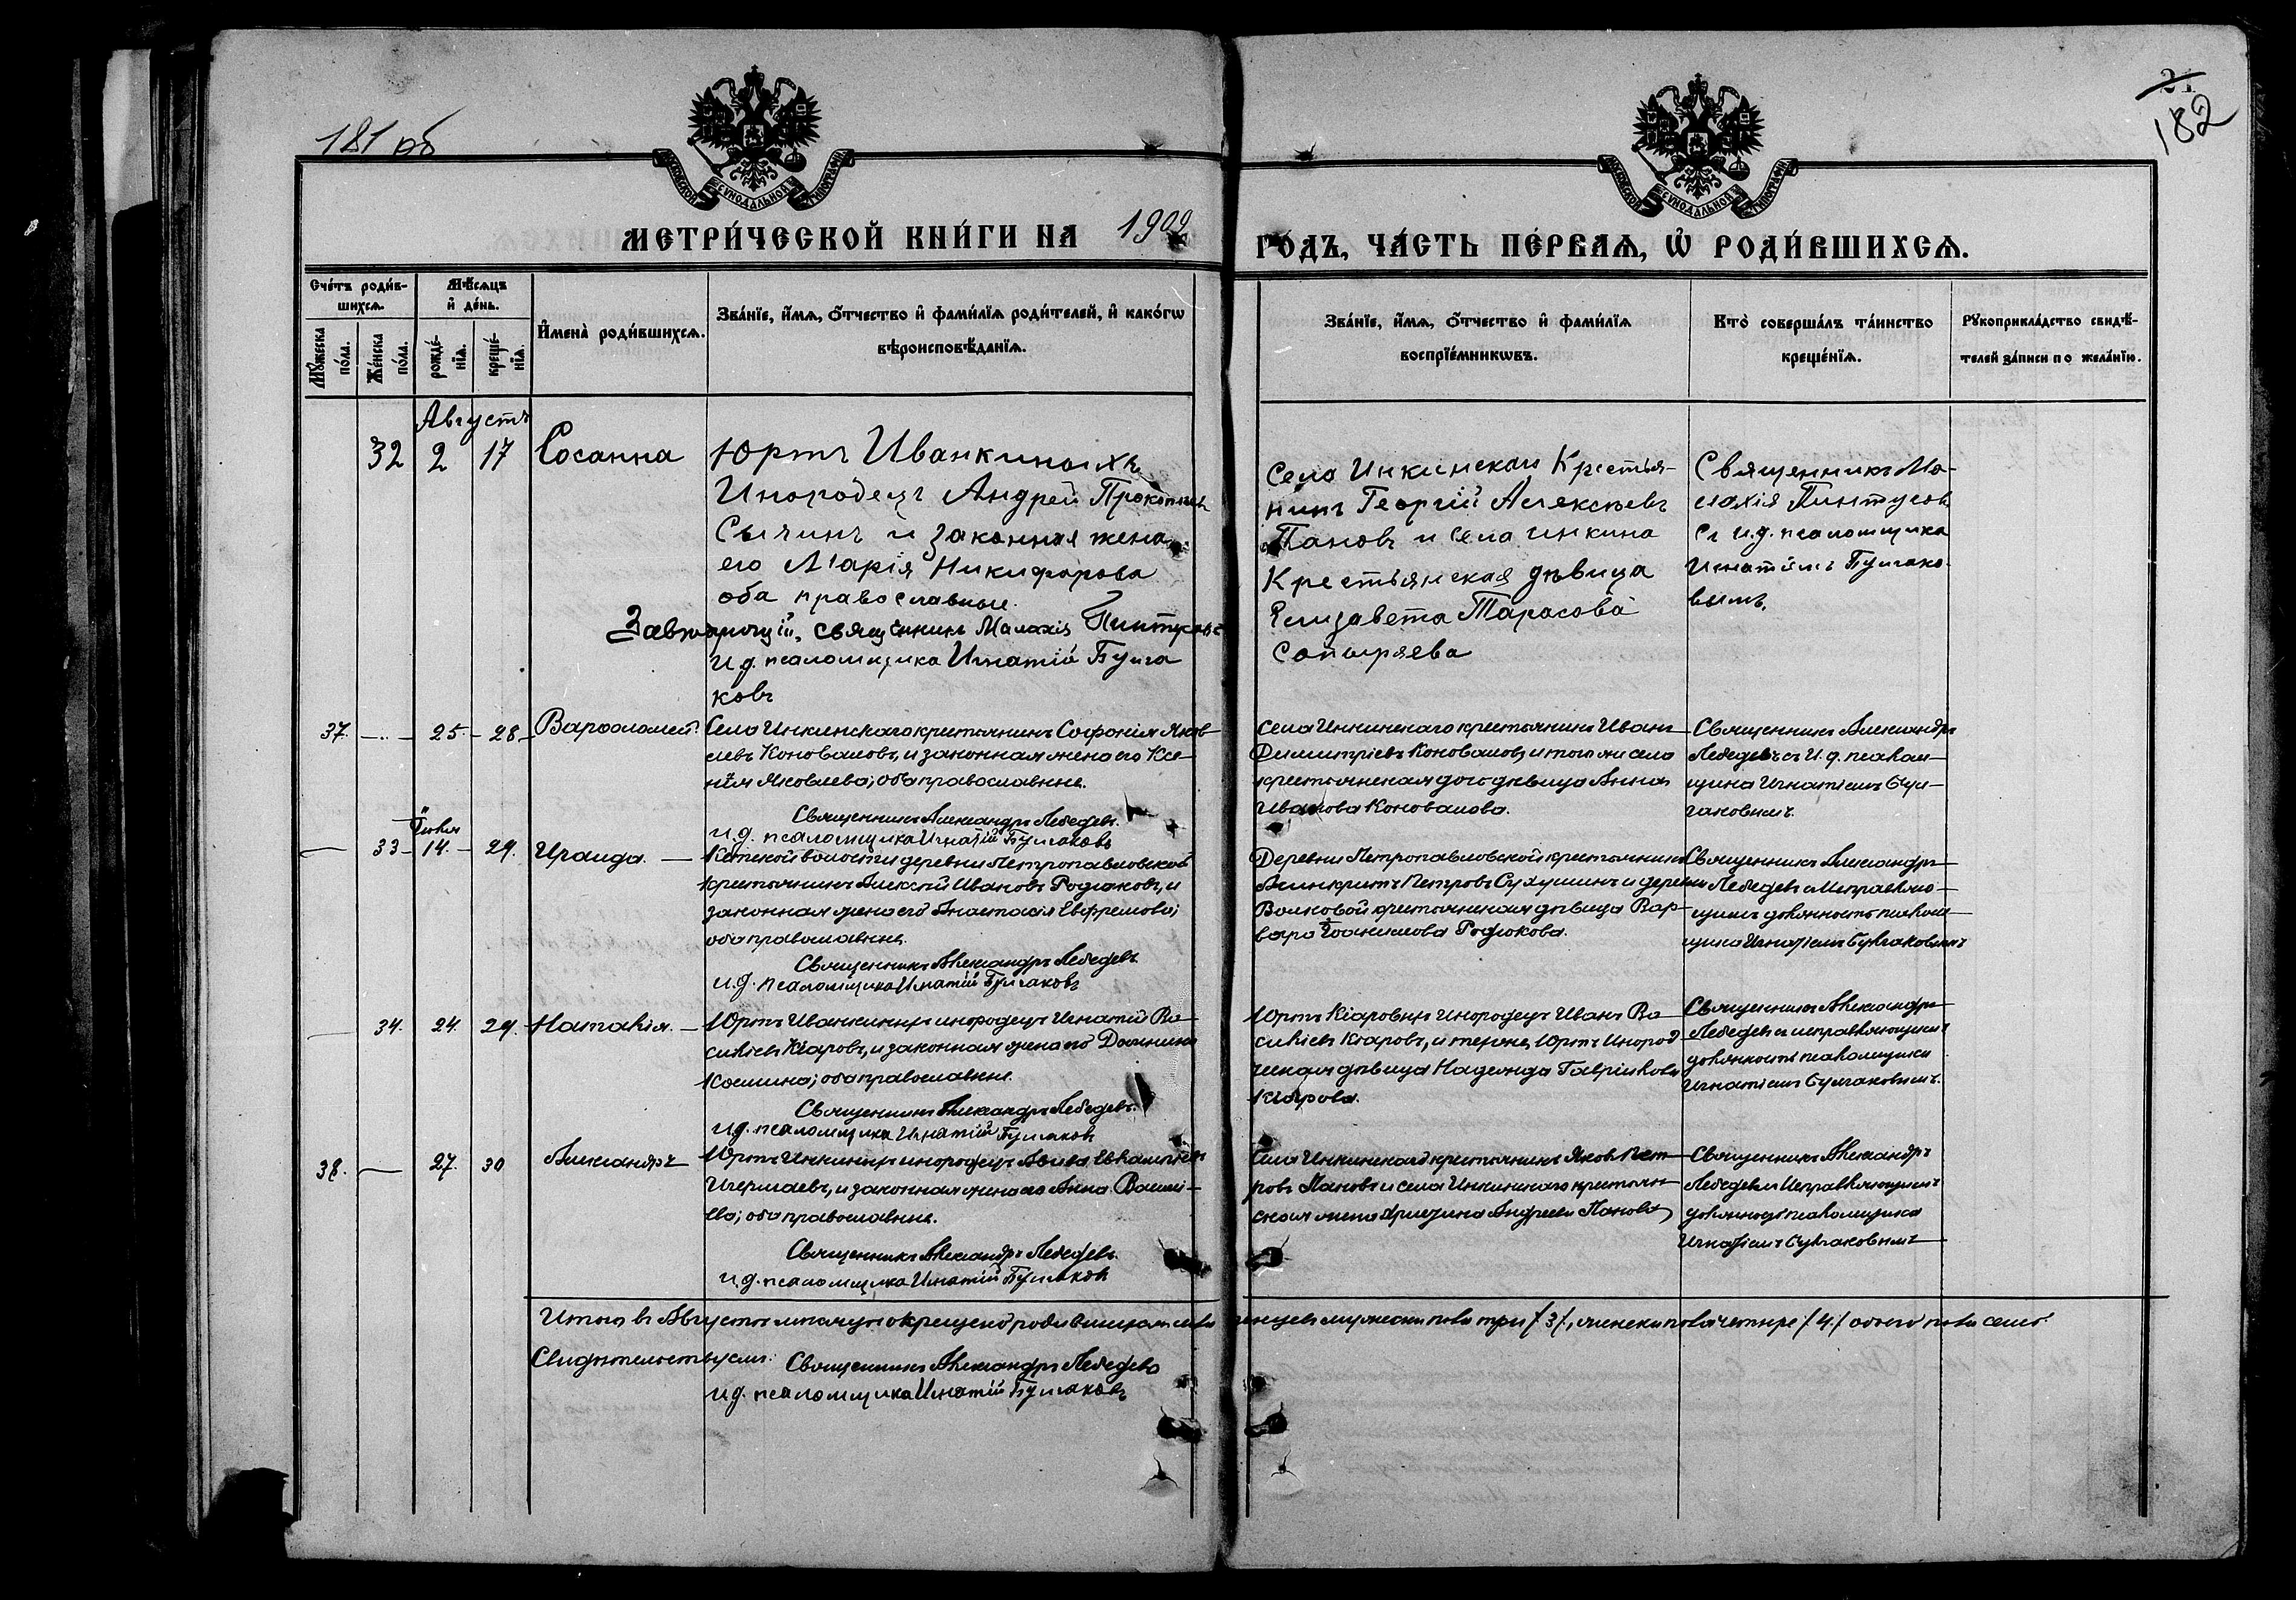 181 об
24
182
МОСКОВСКОЙ СУНОДАЛЬНОЙ ТИПОГРАФІИ
МОСКОВСКОЙ СУНОДАЛЬНОЙ ТИПОГРАФІИ
МЕТРИ́ЧЕСКОЙ КНИ́ГИ НА 1909 ГО́ДЪ, ЧА́СТЬ ПЕ́РВАѦ, Ѡ҆ РОДИ́ВШИХСѦ.
Сче́тъ роди́в-
шихсѧ.
Мꙋ́жеска по́ла.
Же́нска по́ла.
Мѣ́сѧцъ
и҆ де́нь.
рожде́-
нїѧ.
креще́-
нїѧ.
И҆мена̀ роди́вшихсѧ.
Зва́нїе, и҆́мѧ, ѻ҆́тчество и҆ фами́лїѧ роди́телей, и҆ како́гѡ
вѣроисповѣ́данїѧ.
Зва́нїе, и҆́мѧ, ѻ҆́тчество и҆ фами́лїѧ
воспрїе́мникѡвъ.
Кто̀ соверша́лъ та́инство
креще́нїѧ.
Рꙋкоприкла́дство свидѣ́-
телей за́писи по жела́нїю.
Августъ
32 2 17 Сосанна
Юртъ Иванкиныхъ
Инородецъ Андрей Прокопьевъ
Сычинъ и законная жена
его Марія Никифорова
оба православные.
Села Инкинскаго Крестья-
нинъ Георгій Алексѣевъ
Пановъ и села инкина
Крестьянская дѣвица
Елизавета Тарасова
Сопыряева
Священникъ Ма-
лахія Пинтусовъ
съ и.д. псаломщика
Игнатіемъ Булгако-
вымъ.
священникъ Малахія Пинтусовъ
И.д. псаломщика Игнатій Булга
ковъ
37. — 25. 28 Варѳоломей
Села Инкинскаго крестьянинъ Софонія Яков-
левъ Коноваловъ, и законная жена его Ксе-
нія Яковлева; оба православные.
Священникъ Александръ Лебедевъ.
и.д. псаломщика Игнатій Булгаковъ
Села Инкинскаго крестьянинъ Иванъ
Димитріевъ Коноваловъ, и того же села
крестьянская дочь дѣвица Анна
Иванова Коновалова.
Священникъ Александръ
Лебедевъ съ И.д. псалом-
щика Игнатіемъ Бул-
гаковымъ.
Іюля
— 33 14. 29. Ираида.
Кетской волости деревни Петропавловской
крестьянинъ Алексій Ивановъ Родюковъ, и
законная жена его Анастасія Евфремова;
оба православные.
Священникъ Александръ Лебедевъ
и.д. псаломщика Игнатій Булгаковъ
Деревни Петропавловской крестьянинъ
Асинкритъ Петровъ Сухушинъ и деревни
Волковой крестьянская дѣвица Вар-
вара Іоакимова Родюкова.
Священникъ Александръ
Лебедевъ и Исправляю-
щимъ должность псалом-
щика Игнатіемъ Булгаковымъ
— 34. 24. 29. Наталія.
Юртъ Иванкиныхъ инородецъ Игнатій Ва-
сильевъ Кіаровъ, и законная жена его Домника
Косьмина; оба православные.
Священникъ Александръ Лебедевъ.
и.д. псаломщика Игнатій Булгаковъ
Юртъ Кіаровыхъ инородецъ Иванъ Ва-
сильевъ Кіаровъ, и тѣхъ же юртъ инород
ческая дѣвица Надежда Гавріилова
Кіарова.
Священникъ Александръ
Лебедевъ и исправляющимъ
должность псаломщика
Игнатіемъ Булгаковымъ.
38. — 27. 30 Александръ
Юртъ Инкиныхъ инородецъ
и законная жена его Анна Василь-
ева; оба православные.
Священникъ Александръ Лебедевъ.
и.д. псаломщика Игнатій Булгаковъ
Села Инкинскаго крестьянинъ Яковъ Пет-
ровъ Пановъ и села Инкинскаго крестьян-
ская жена Андреева Панова
Священникъ Александръ
Лебедевъ и Исправляющимъ
должность псаломщика
Игнатіемъ Булгаковымъ
Итого въ Августѣ мѣсяцѣ окрещено родившихся младенцевъ мужеска пола три /3/, женска пола четыре /4/ обоего пола семь.
Свидѣтельствуемъ: Священникъ Александръ Лебедевъ
и.д. псаломщика Игнатій Булгаковъ